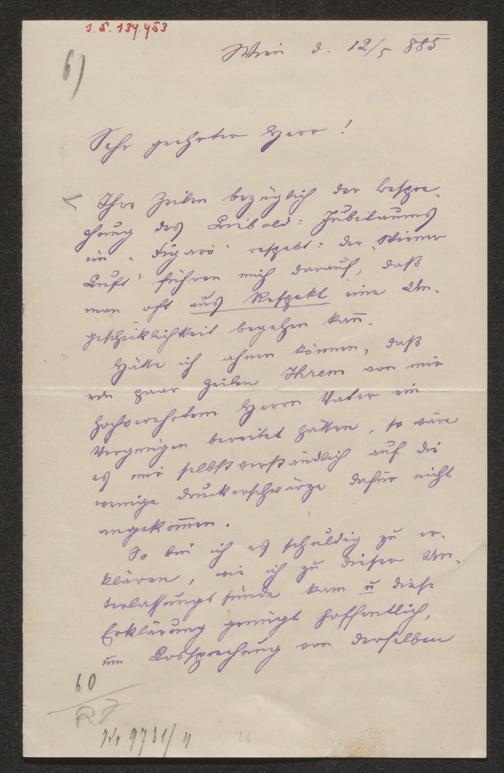 I. N. 139.953
6)
Wien d. 12/5 885
Sehr geehrter Herr!
Ihre Zeilen bezüglich der Bespre-
chung des Leibold: Jubiläums
im "Figaro" respekt: der "Wiener
Luft" führen mich darauf, daß
man oft aus Respekt eine Un-
geschicklichkeit begehen kann.
Hätte ich ahnen können, daß
ein paar Zeilen Ihrem von mir
hochverehrtem Herrn Vater ein
Vergnügen bereitet hätten, so wäre
es mir selbstverständlich auf die
wenige Druckerschwärze dafür nicht
angekommen.
So bin ich es schuldig zu er-
klären, wie ich zu dieser Un-
terlassungssünde kam u diese
Erklärung genügt hoffentlich,
um Lossprechung von derselben
60
Nr 9731/4